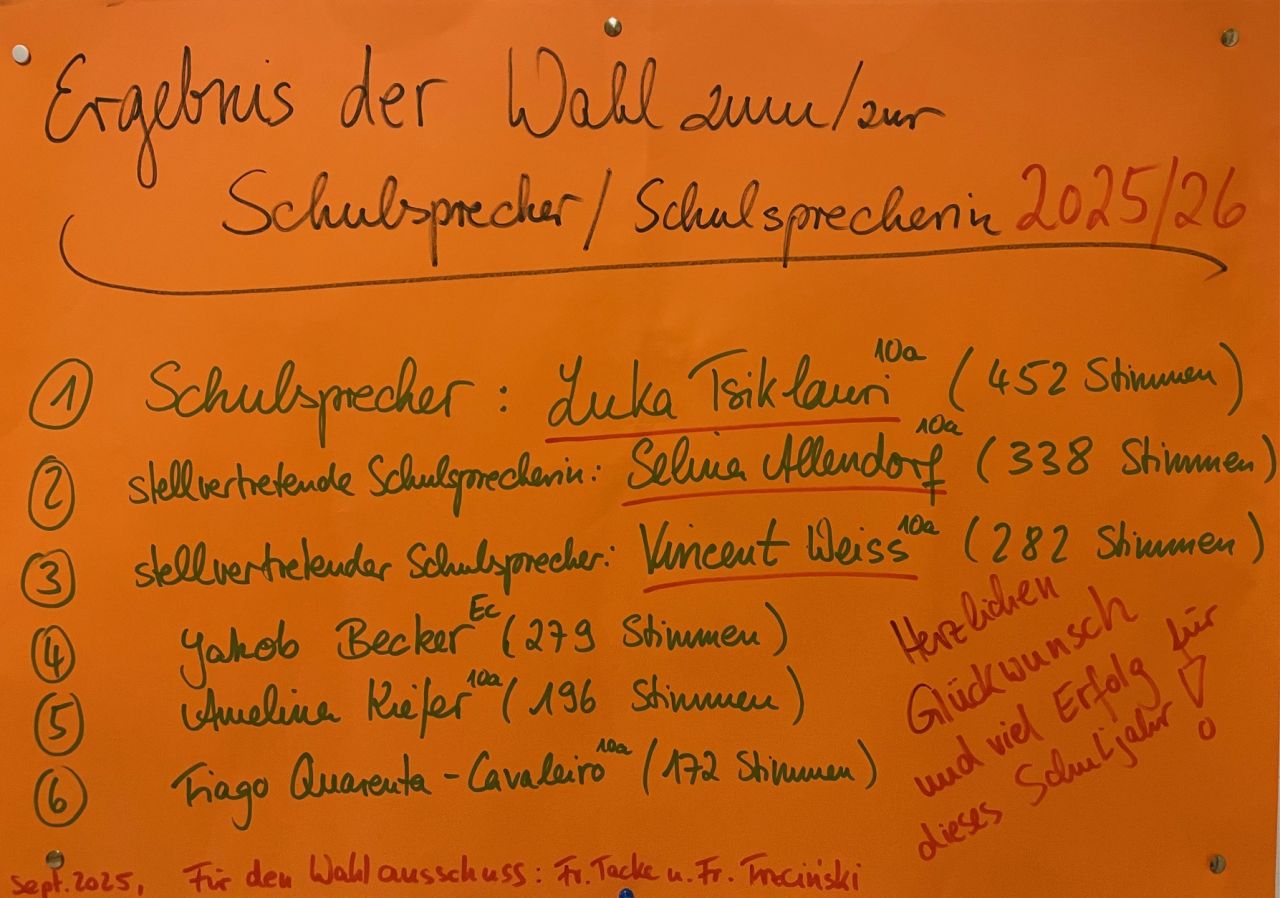 Ergebnis der Wahl zum/zur
Schulsprecher/Schulsprecherin 2025/26
① Schulsprecher: Luka Tsiklauri 10a (452 Stimmen)
② stellvertretende Schulsprecherin: Selina Allendorf 10a (338 Stimmen)
③ stellvertretender Schulsprecher: Vincent Weiss 10a (282 Stimmen)
④ Jakob Becker Ec (279 Stimmen)
⑤ Amelina Kiefer 10a (196 Stimmen)
⑥ Tiago Quarenta-Cavaleiro 10a (172 Stimmen)
Herzlichen
Glückwunsch
und viel Erfolg für
dieses Schuljahr!
Sept. 2025, Für den Wahlausschuss: Fr. Tacke u. Fr. Trzciński